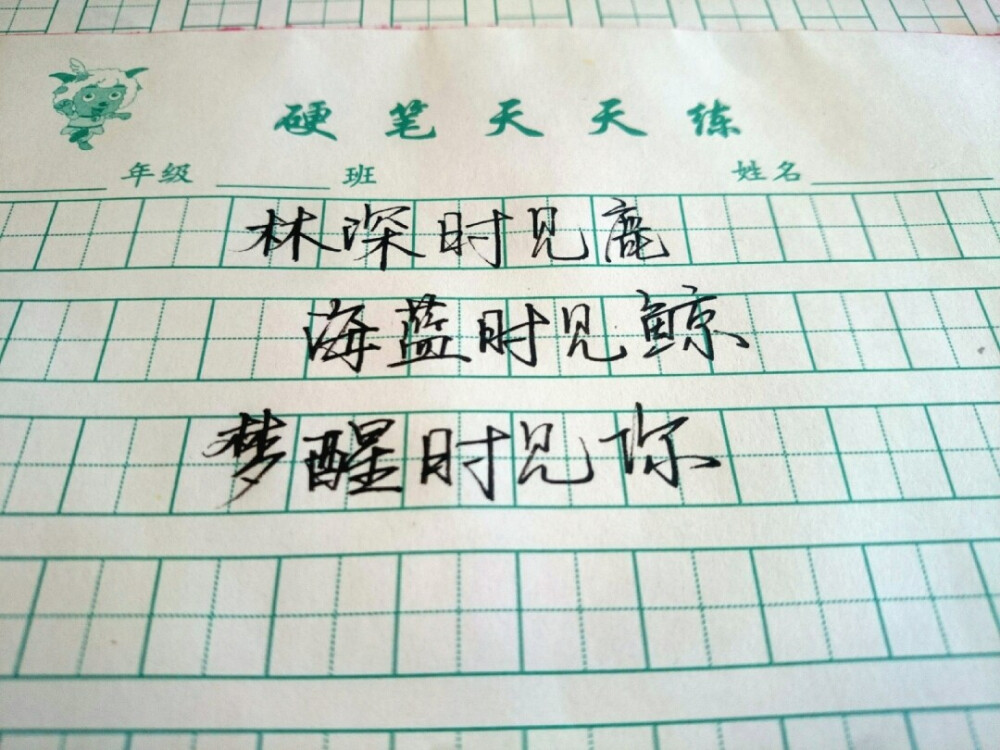 硬笔天天练
年级 班 姓名
林深时见鹿
海蓝时见鲸
梦醒时见你